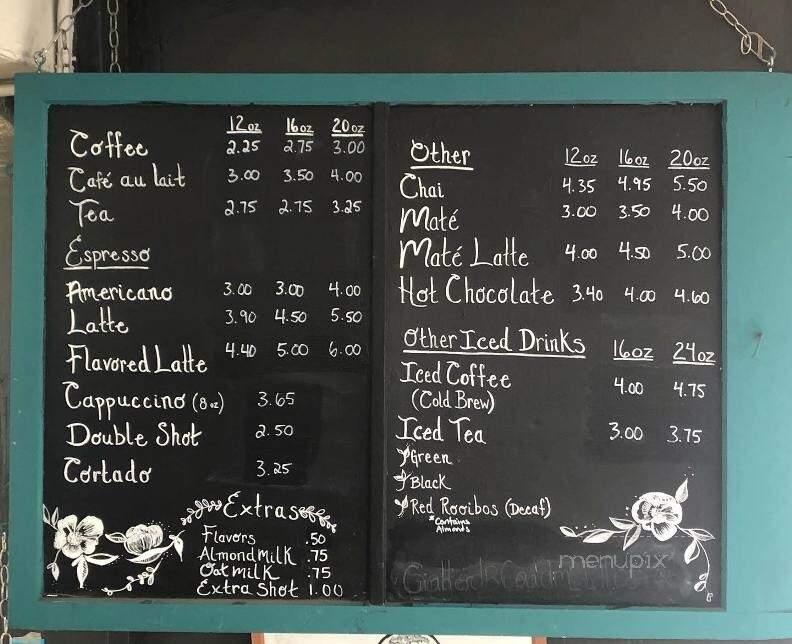 12oz 16oz 20oz
Coffee 2.25 2.75 3.00
Café au lait 3.00 3.50 4.00
Tea 2.75 2.75 3.25
Espresso
Americano 3.00 3.00 4.00
Latte 3.90 4.50 5.50
Flavored Latte 4.40 5.00 6.00
Cappuccino (8oz) 3.65
Double Shot 2.50
Cortado 3.25
Extras
Flavors .50
Almond Milk .75
Oat milk .75
Extra Shot 1.00
Other 12oz 16oz 20oz
Chai 4.35 4.95 5.50
Maté 3.00 3.50 4.00
Maté Latte 4.00 4.50 5.00
Hot Chocolate 3.40 4.00 4.60
Other Iced Drinks 16oz 24oz
Iced Coffee 4.00 4.75
(Cold Brew)
Iced Tea 3.00 3.75
Green
Black
Red Rooibos (Decaf)
*Contains
Almonds
menupix